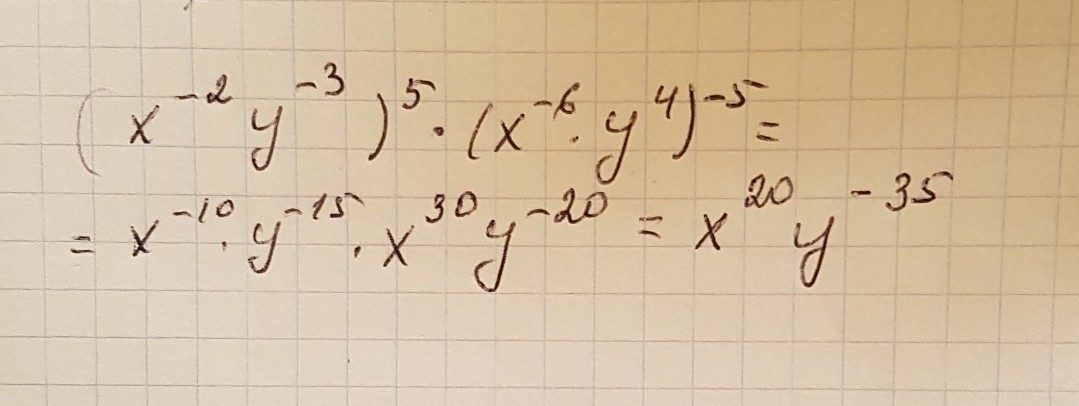 (x⁻² y⁻³)⁵ · (x⁻⁶ · y⁴)⁻⁵ =
= x⁻¹⁰ · y⁻¹⁵ · x³⁰ y⁻²⁰ = x²⁰ y⁻³⁵